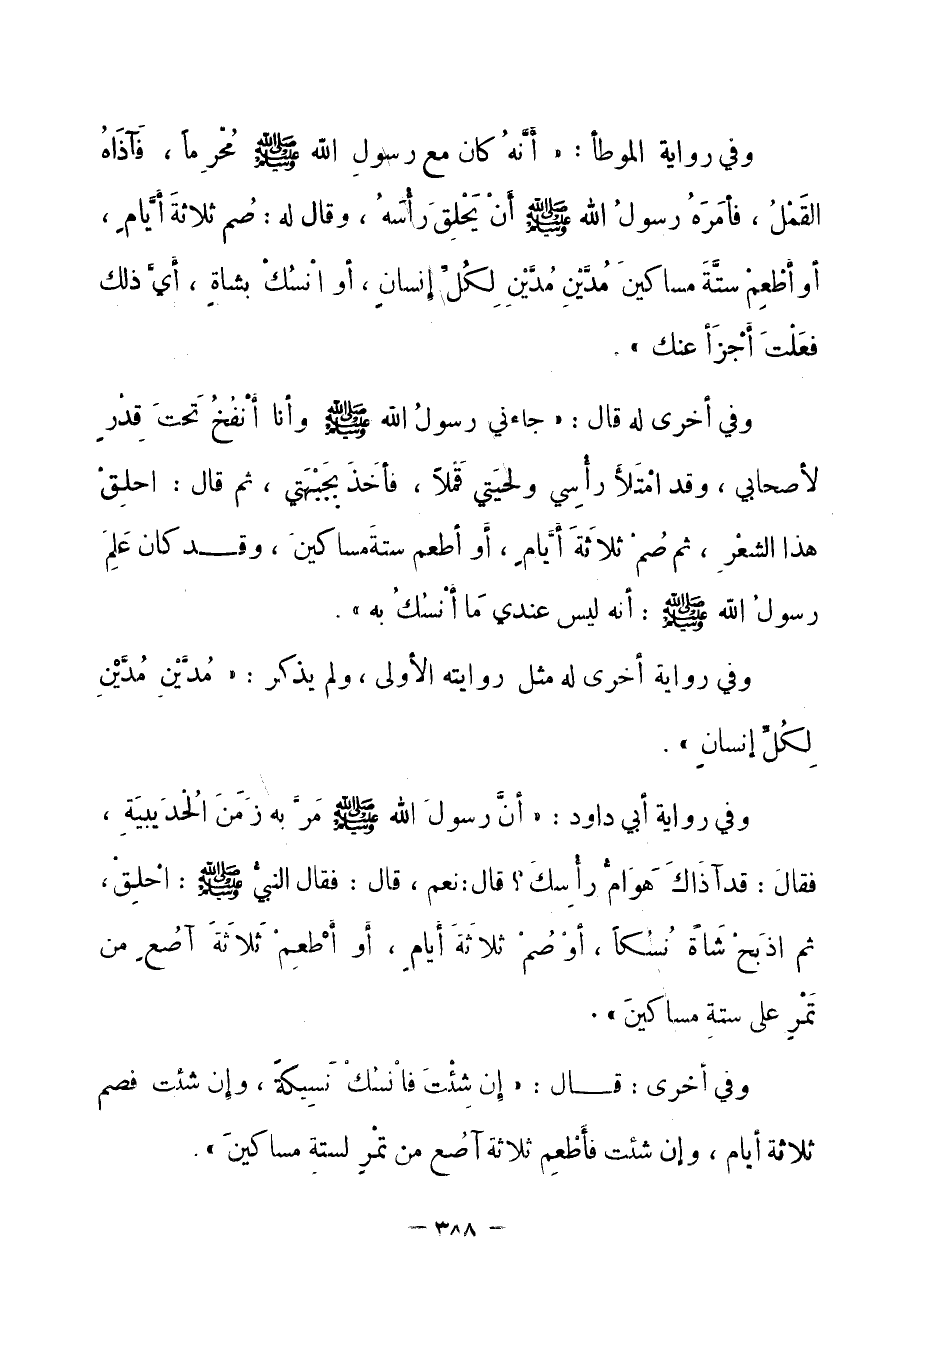 وفي رواية الموطأ : « أَنَّهُ كان مع رسولِ الله ﷺ مُحْرِماً ، فَآذَاهُ
القَمْلُ ، فأمَرَهُ رسولُ الله ﷺ أَنْ يَحْلِقَ رَأْسَهُ ، وقال له : صُم ثلاثةَ أَيَّامٍ ،
أو أَطْعِمْ ستَّةَ مساكينَ مُدَّيْنِ مُدَّيْنِ لِكُلِّ إنسانٍ ، أو انْسُكْ بشاةٍ ، أَيَّ ذلك
فعَلْتَ أَجْزَأَ عنك » .
وفي أخرى له قال : « جاءني رسولُ الله ﷺ وأنا أَنْفُخُ تَحتَ قِدْرٍ
لأصحابي ، وقد امْتَلأَ رأْسِي ولحيَتي قَمْلاً ، فأخَذَ بِجَبْهَتي ، ثم قال : احلِقْ
هذا الشعْرِ ، ثم صُمْ ثلاثَةَ أَيَّامٍ ، أو أطعم ستةَ مساكينَ ، وقـــد كان عَلِمَ
رسولُ الله ﷺ : أنه ليس عندي مَا أَنْسُكُ به » .
وفي رواية أخرى له مثل روايته الأولى ، ولم يذكر : « مُدَّيْنِ مُدَّيْنِ
لِكُلِّ إنسانٍ » .
وفي رواية أبي داود : « أنَّ رسولَ الله ﷺ مَرَّ به زَمَنَ الْحُدَيبيَةِ ،
فقالَ : قد آذَاكَ هَوَامُّ رأْسِكَ ؟ قال : نعم ، قال : فقال النبيُّ ﷺ : احْلِقْ ،
ثم اذبَحْ شَاةً نُسُكاً ، أوْ صُمْ ثلاثَةَ أيامٍ ، أو أَطْعِمْ ثَلاثَةَ آصُعٍ من
تَمْرٍ على ستةِ مساكينَ » .
وفي أخرى : قـــال : « إن شئْتَ فانْسُكْ نَسيكَةً ، وإن شئت فصم
ثلاثة أيام ، وإن شئت فأَطْعِم ثلاثة آصُع من تمْرٍ لستةِ مساكينَ » .
— ٣٨٨ —